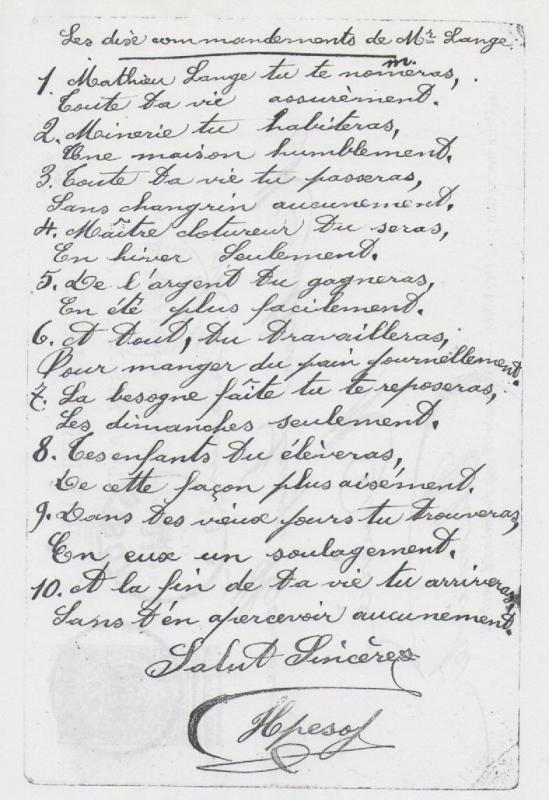 Les dix commandements de Mr Lange.
1. Mathieu Lange tu te nommeras,
Toute ta vie assurèment.
2. Minerie tu habiteras,
Une maison humblement.
3. Toute ta vie tu passeras,
Sans changrin aucunement.
4. Maître clotureur tu seras,
En hiver seulement.
5. De l'argent tu gagneras,
En été plus facilement.
6. A tout, tu travailleras,
Pour manger du pain journellement.
7. La besogne faîte tu te reposeras,
Les dimanches seulement.
8. Tes enfants tu élèveras,
De cette façon plus aisément.
9. Dans tes vieux jours tu trouveras,
En eux un soulagement.
10. A la fin de ta vie tu arriveras,
Sans t'en apercevoir aucunement.
Salut Sincères